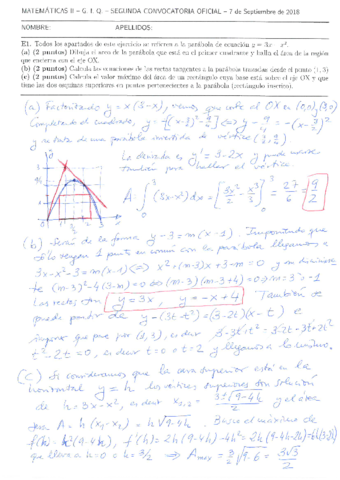 MATEMÁTICAS II – G. I. Q. – SEGUNDA CONVOCATORIA OFICIAL – 7 de Septiembre de 2018
NOMBRE: APELLIDOS:
E1. Todos los apartados de este ejercicio se refieren a la parábola de ecuación y = 3x − x².
(a) (2 puntos) Dibuja el arco de la parábola que está en el primer cuadrante y halla el área de la región
que encierra con el eje OX.
(b) (2 puntos) Calcula las ecuaciones de las rectas tangentes a la parábola trazadas desde el punto (1, 3)
(c) (2 puntos) Calcula el valor máximo del área de un rectángulo cuya base está sobre el eje OX y que
tiene las dos esquinas superiores en puntos pertenecientes a la parábola (rectángulo inscrito).
(a) Factorizando y = x(3-x), vemos que corta el OX en (0,0), (3,0)
Completando el cuadrado, y = -[(x-3/2)² - 9/4] ⇔ y - 9/4 = -(x-3/2)²
y se trata de una parábola invertida de vértice (3/2, 9/4)
La derivada es y' = 3-2x y puede usarse
también para hallar el vértice
A = ∫₀³ (3x-x²)dx = [3x²/2 - x³/3]₀³ = 27/6 = 9/2
(b) Será de la forma y-3 = m(x-1). Imponiendo que
sólo tengan 1 punto en común con la parábola llegamos a
3x-x²-3 = m(x-1) ⇔ x²+(m-3)x+3-m=0 y
(m-3)²-4(3-m)=0 ⇔ (m-3)(m-3+4)=0 ⇒ m=3, -1
Las rectas son y = 3x, y = -x+4 También se
puede partir de y-(3t-t²) = (3-2t)(x-t) e
imponer que pase por (1,3), es decir 3-3t+t² = 3-2t-3t+2t²
t²-2t=0, es decir t=0 o t=2 y llegamos a lo mismo.
(c) Si consideramos que la cara superior está en la
horizontal y = h los vértices superiores son solución
de h = 3x-x², es decir x₁,₂ = (3±√(9-4h))/2 y el área
será A = h(x₁-x₂) = h√(9-4h). Busco el máximo de
f(h) = h²(9-4h), f'(h) = 2h(9-4h)-4h² = 2h(9-4h-2h) = 6h(3-2h)
que lleva a h=0 o h=3/2 ⇒ Amax = 3/2 √(9-6) = 3√3/2